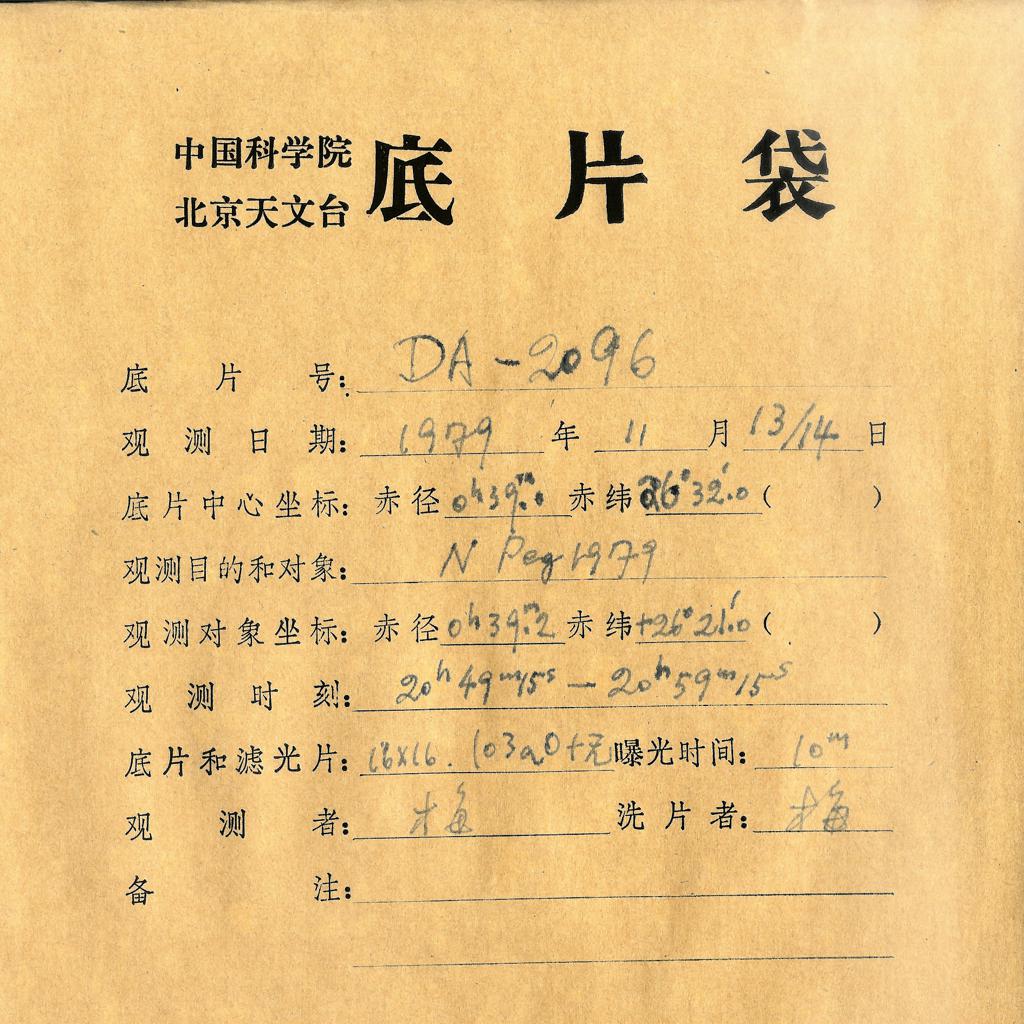 中国科学院
北京天文台
底片袋
底片号: DA-2096
观测日期: 1979 年 11 月 13/14 日
底片中心坐标: 赤径 0ʰ39ᵐ.0 赤纬 26°32′.0 ( )
观测目的和对象: N Peg 1979
观测对象坐标: 赤径 0ʰ39ᵐ.2 赤纬 +26°21′.0 ( )
观测时刻: 20ʰ49ᵐ15ˢ — 20ʰ59ᵐ15ˢ
底片和滤光片: 16×16. 103aO+无 曝光时间: 10ᵐ
观测者: 梅 洗片者: 梅
备注: